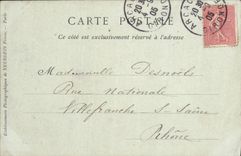 CARTE POSTALE
Ce côté est exclusivement réservé à l'adresse
ARCACHON
GIRONDE
Mademoiselle Desnoëls
Rue Nationale
Villefranche s. Saône
Rhône
Etablissements Photographiques de NEURDEIN Frères. - Paris